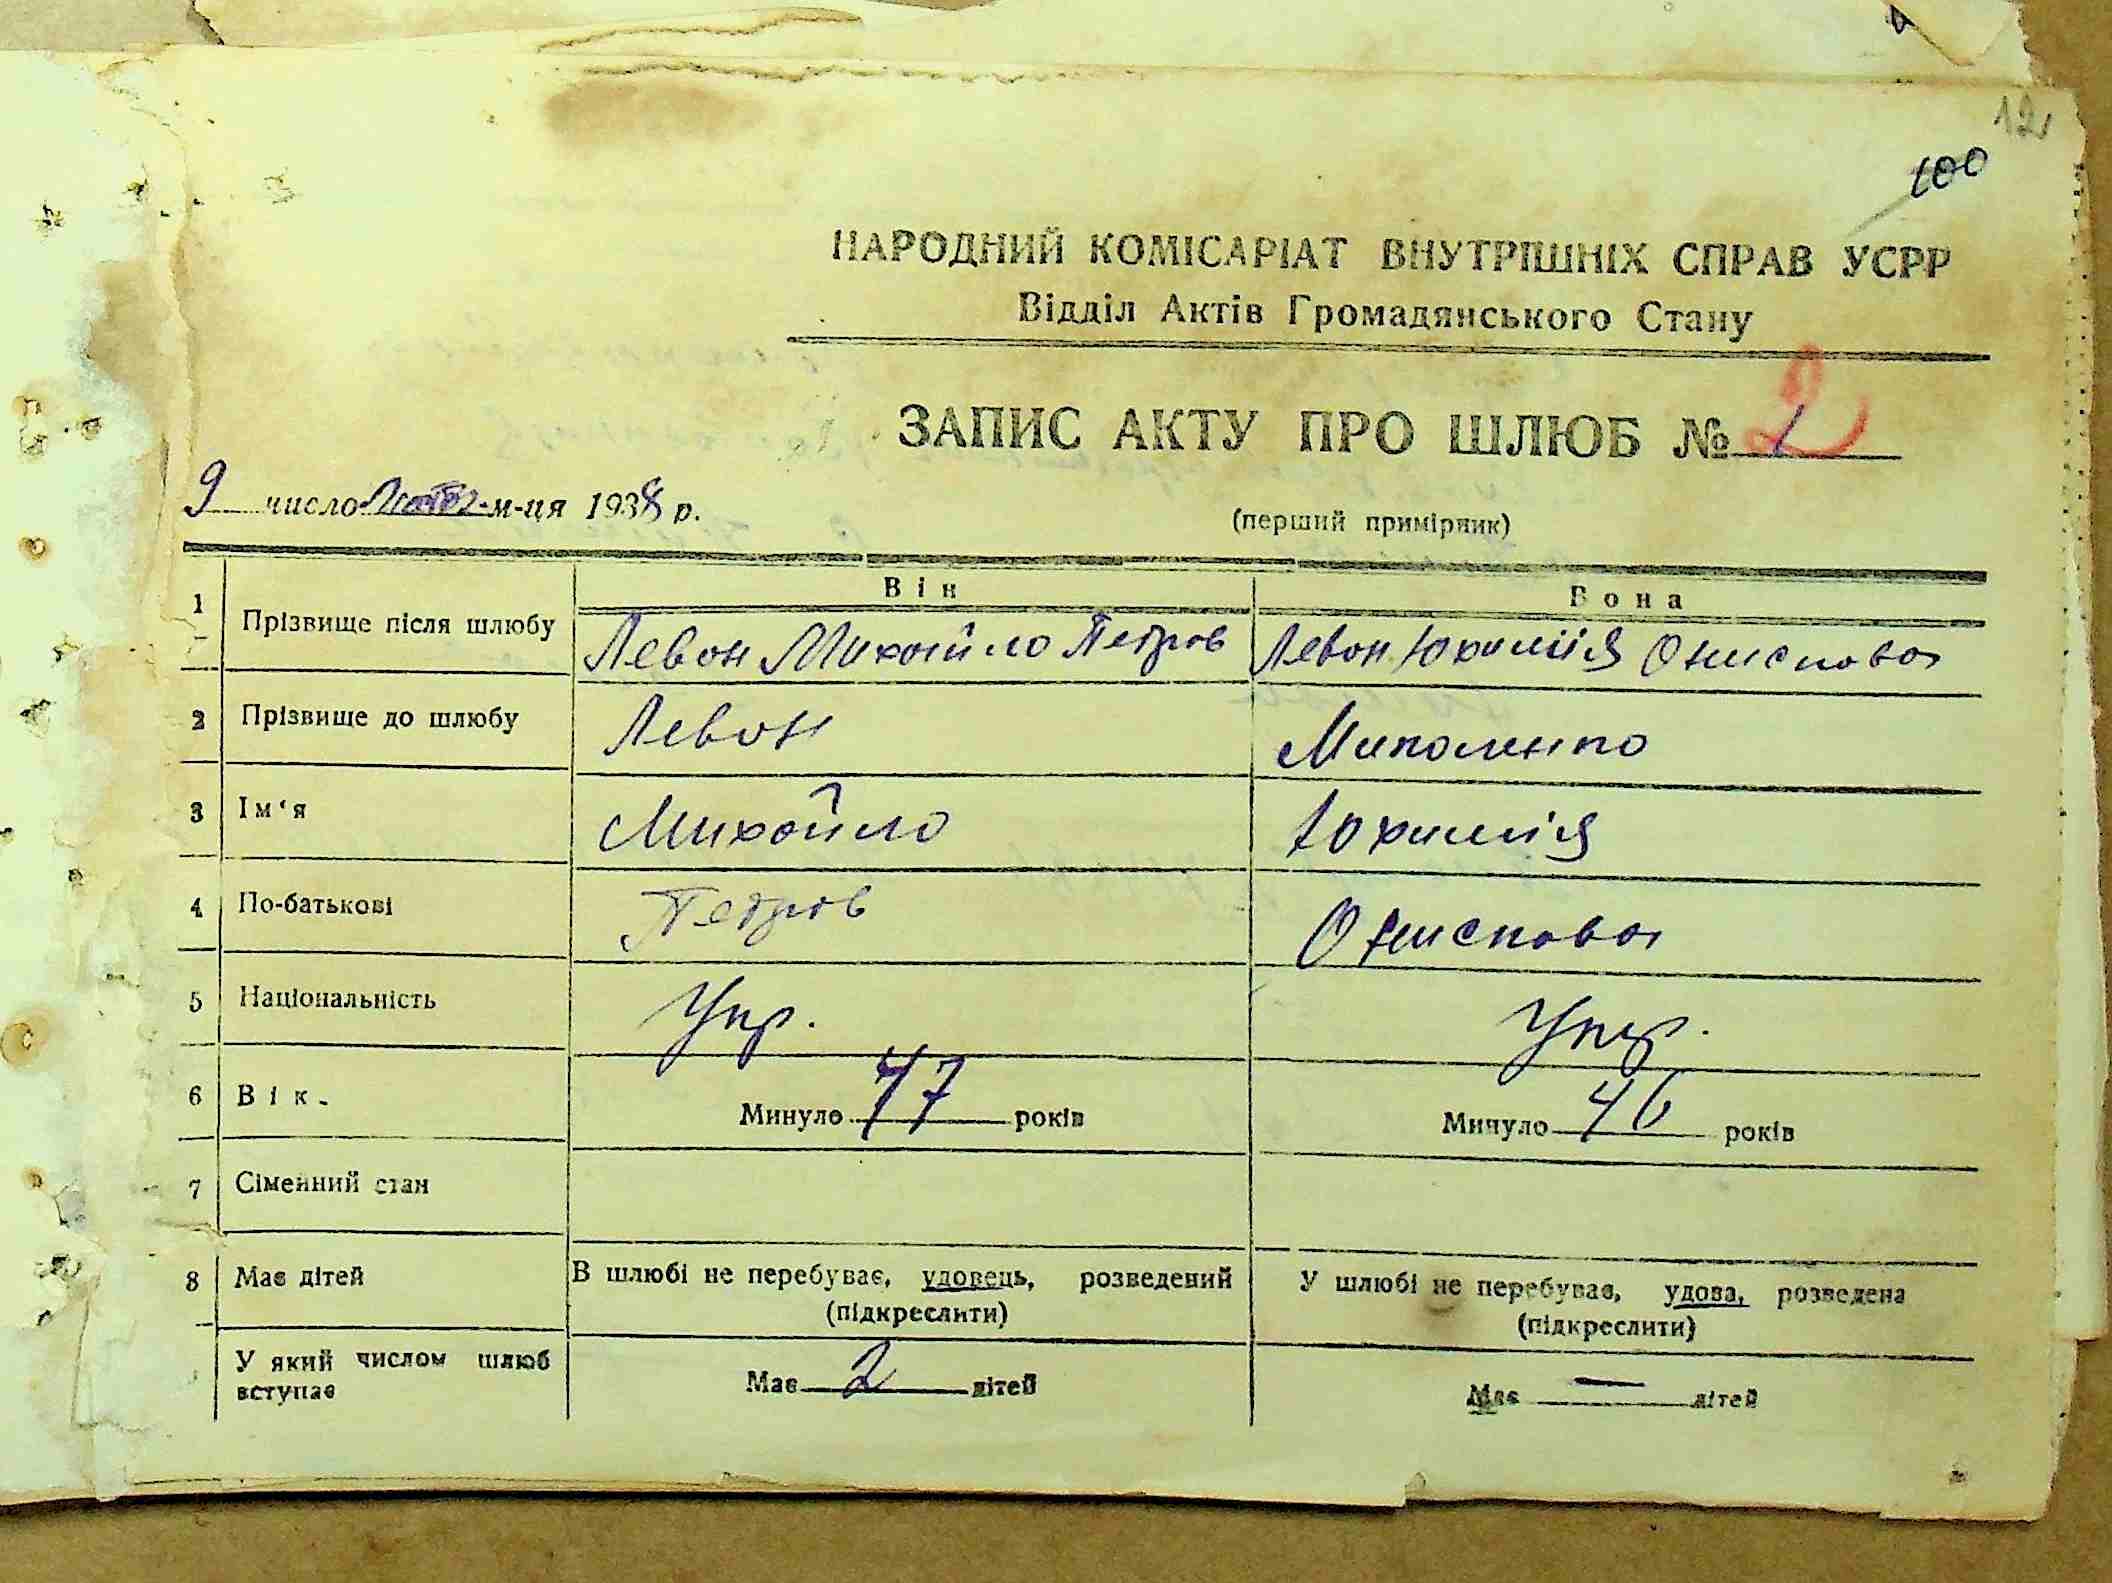 12
100
НАРОДНИЙ КОМІСАРІАТ ВНУТРІШНІХ СПРАВ УСРР
Відділ Актів Громадянського Стану
ЗАПИС АКТУ ПРО ШЛЮБ № 2
9 число м-ця 1938 р.
(перший примірник)
Він Вона
1 Прізвище після шлюбу Левон Михайло Петров Левон Юхимія Онискова
2 Прізвище до шлюбу Левон
3 Ім'я Михайло Юхимія
4 По-батькові Петров Онискова
5 Національність Укр. Укр.
6 Вік. Минуло 47 років Минуло 46 років
7 Сімейний стан
8 Має дітей В шлюбі не перебуває, удовець, розведений (підкреслити) У шлюбі не перебуває, удова, розведена (підкреслити)
У який числом шлюб вступає Має 2 дітей Має — дітей